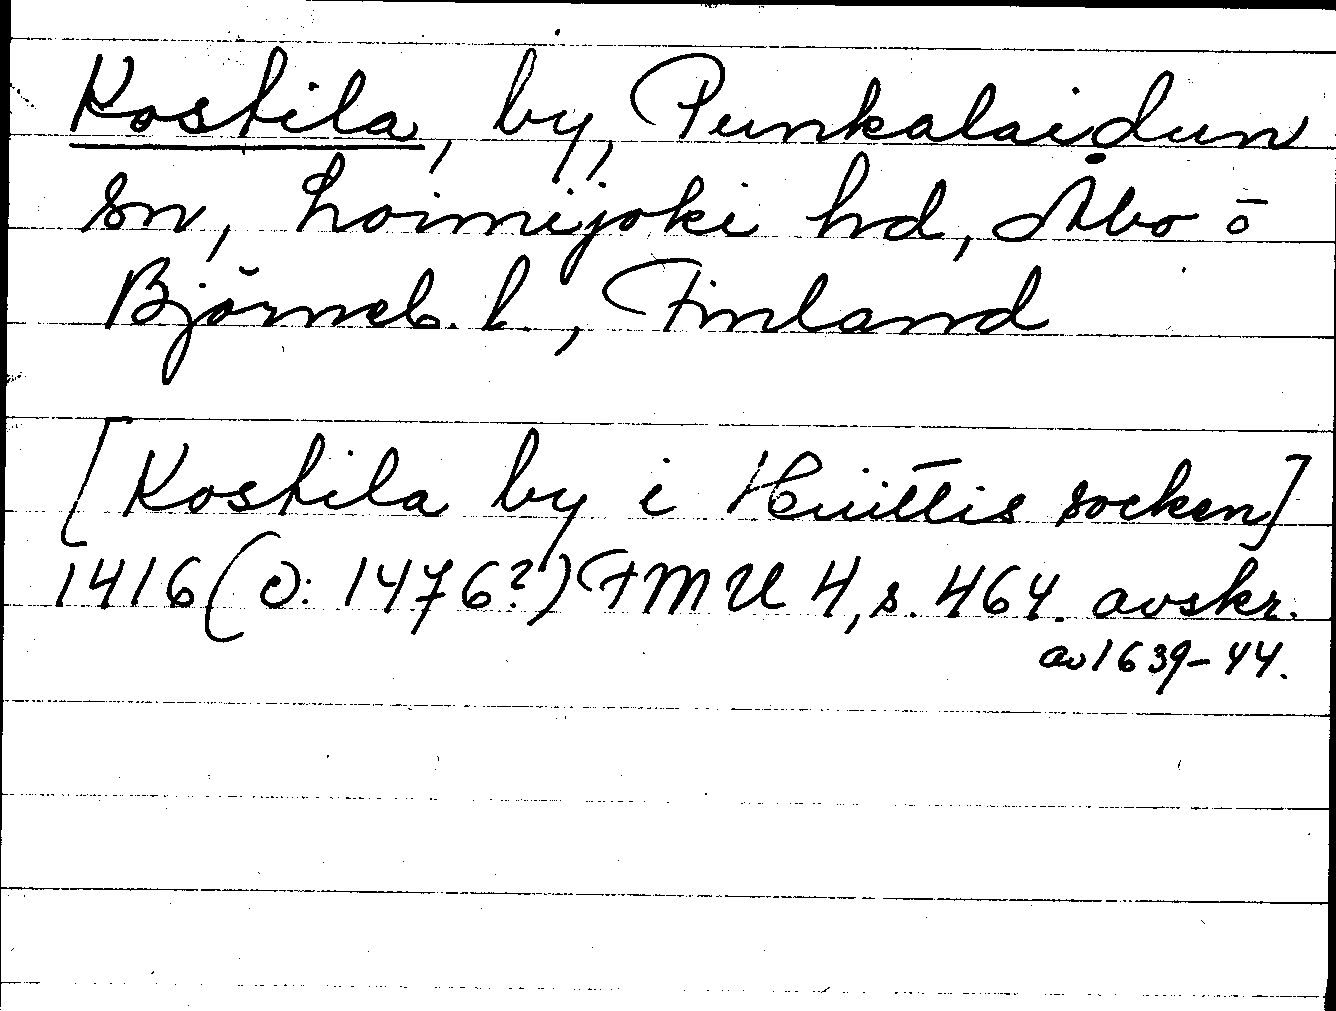 Kostila, by, Punkalaidun
sn, Loimijoki hd, Åbo o
Björneb. l., Finland
[Kostila by i Huittis socken]
1416 (o: 1476?) FMU 4, s. 464. avskr.
av 1639-44.